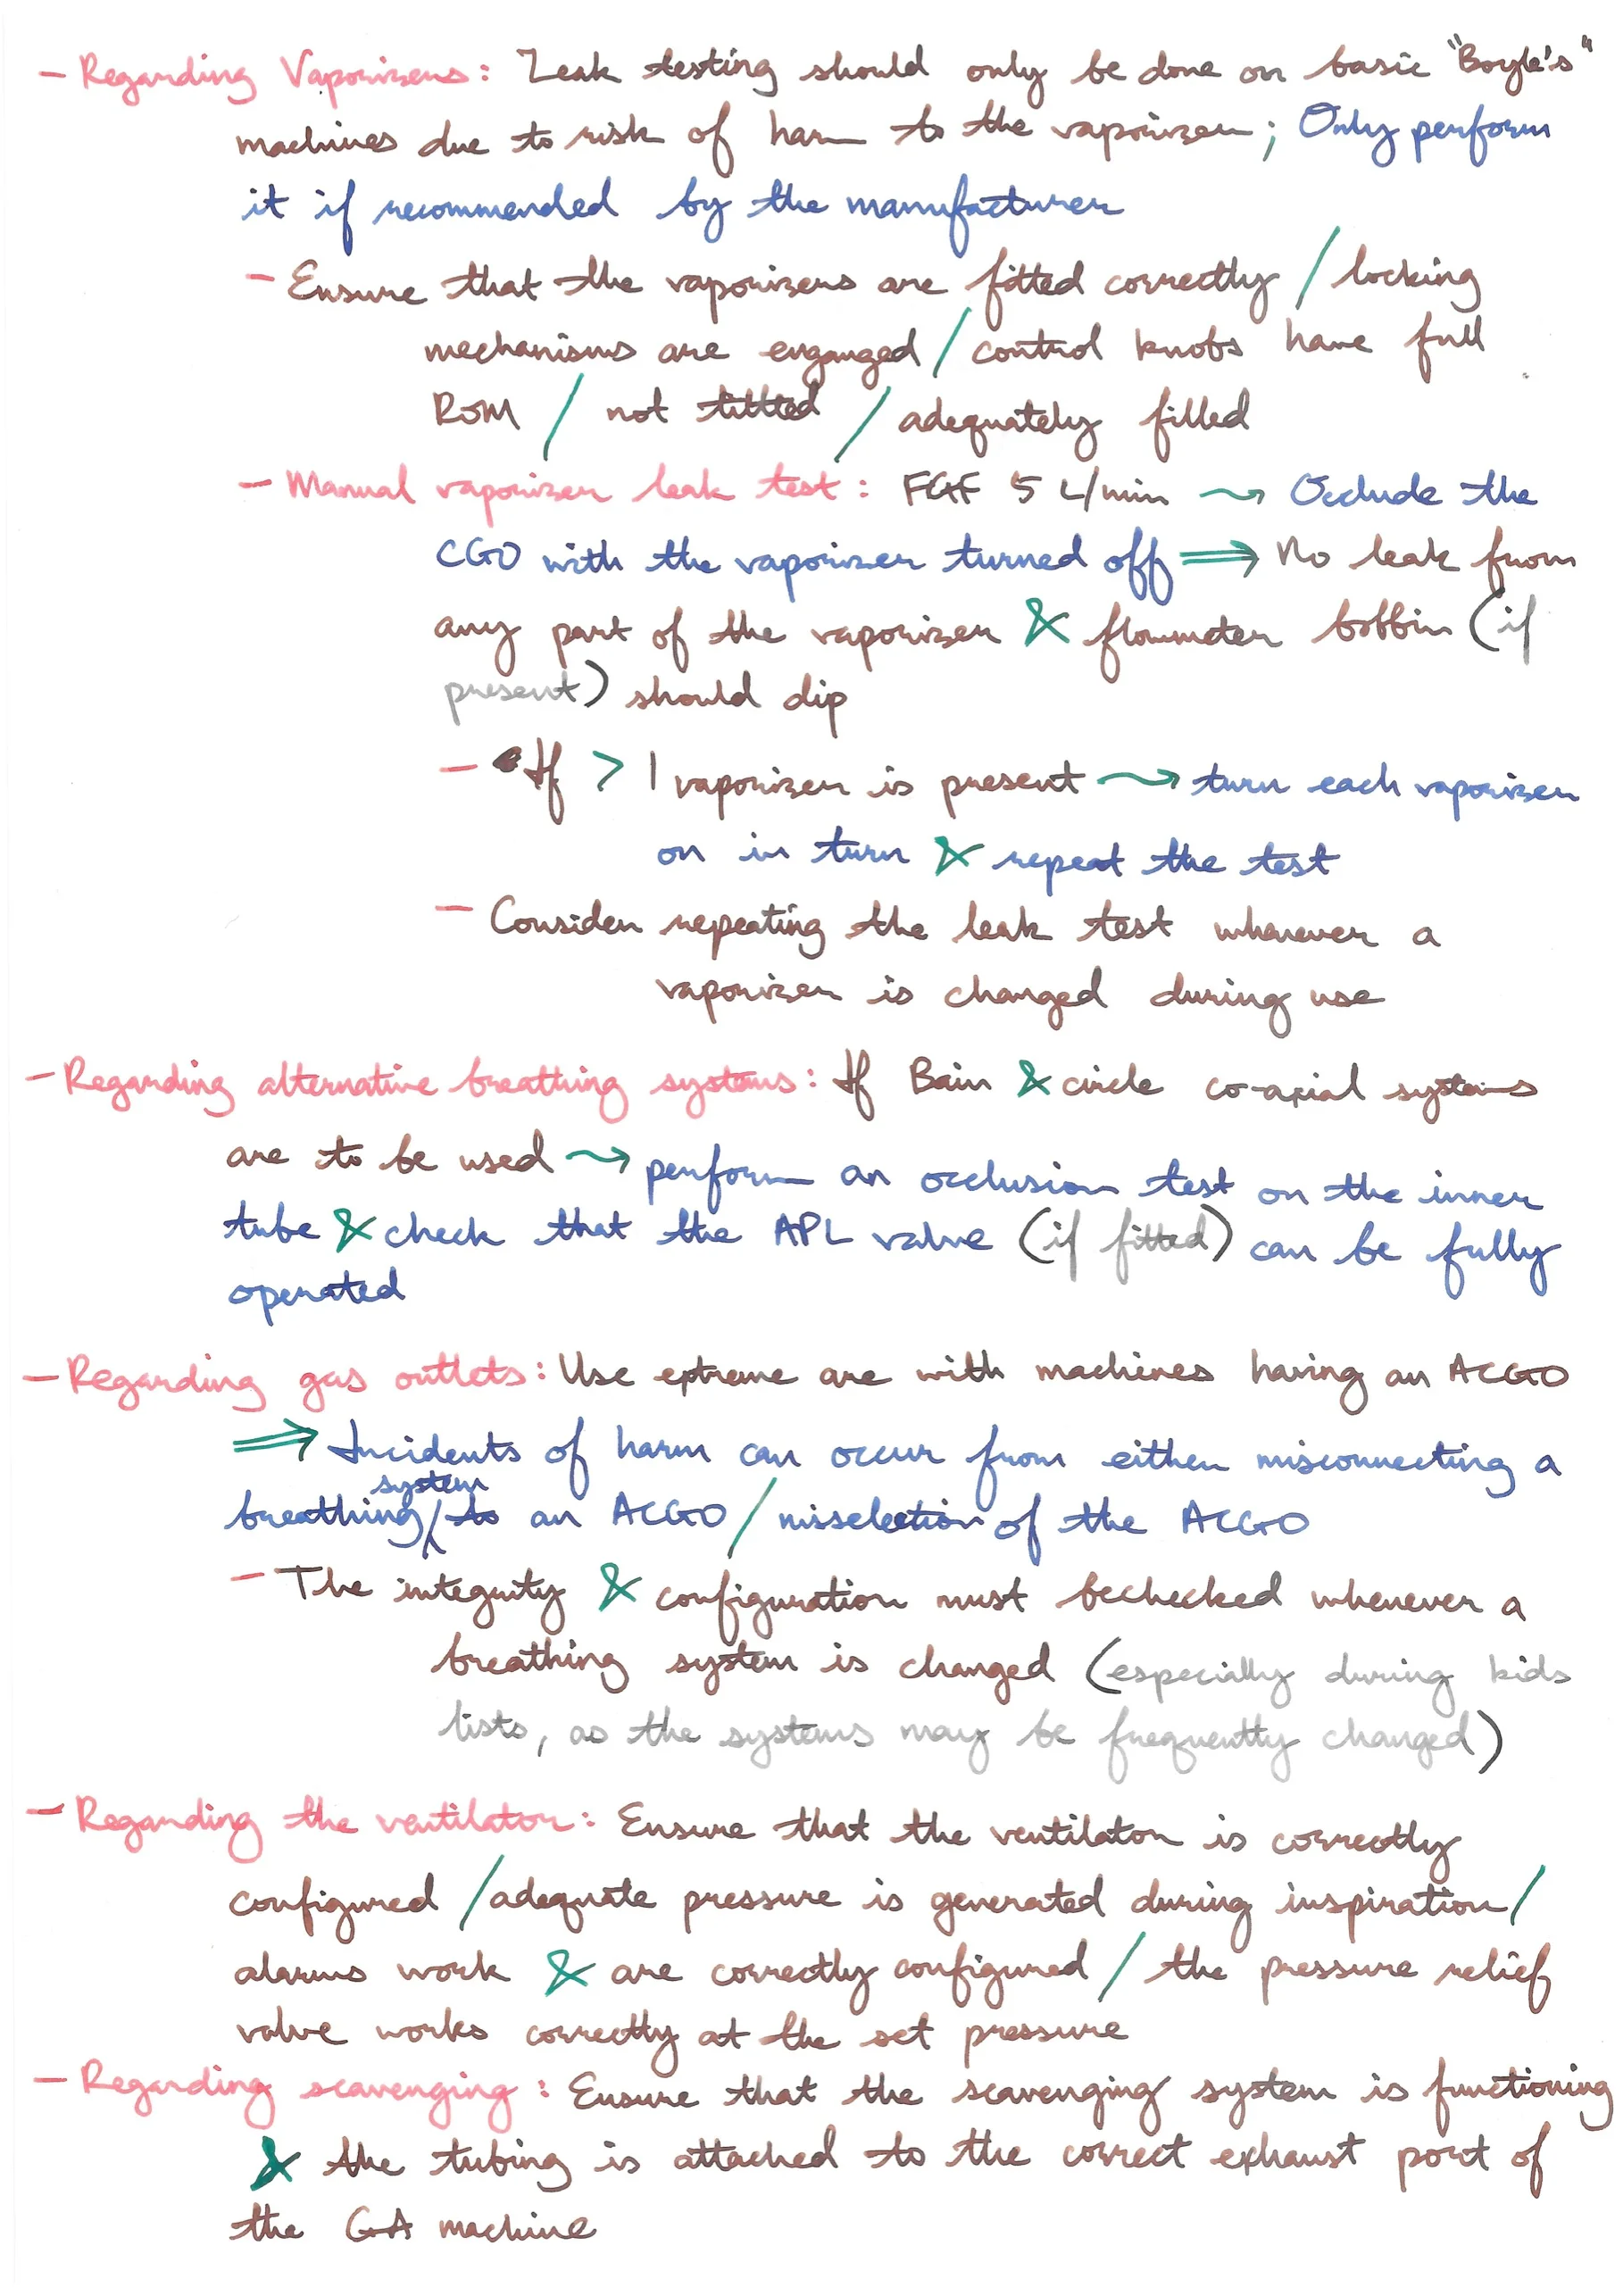 - Regarding Vaporizers: Leak testing should only be done on basic "Boyle's"
machines due to risk of harm to the vaporizer; Only perform
it if recommended by the manufacturer
- Ensure that the vaporizers are fitted correctly / locking
mechanisms are enganged / control knobs have full
ROM / not tilted / adequately filled
- Manual vaporizer leak test: FGF 5 L/min ⇝ Occlude the
CGO with the vaporizer turned off ⟹ No leak from
any part of the vaporizer & flowmeter bobbin (if
present) should dip
- If > 1 vaporizer is present ⇝ turn each vaporizer
on in turn & repeat the test
- Consider repeating the leak test whenever a
vaporizer is changed during use
- Regarding alternative breathing systems: If Bain & circle co-axial systems
are to be used ⇝ perform an occlusion test on the inner
tube & check that the APL valve (if fitted) can be fully
operated
- Regarding gas outlets: Use extreme are with machines having an ACGO
⟹ Incidents of harm can occur from either misconnecting a
breathing system to an ACGO / misselection of the ACGO
- The integrity & configuration must be checked whenever a
breathing system is changed (especially during kids
lists, as the systems may be frequently changed)
- Regarding the ventilator: Ensure that the ventilator is correctly
configured / adequate pressure is generated during inspiration /
alarms work & are correctly configured / the pressure relief
valve works correctly at the set pressure
- Regarding scavenging: Ensure that the scavenging system is functioning
& the tubing is attached to the correct exhaust port of
the GA machine